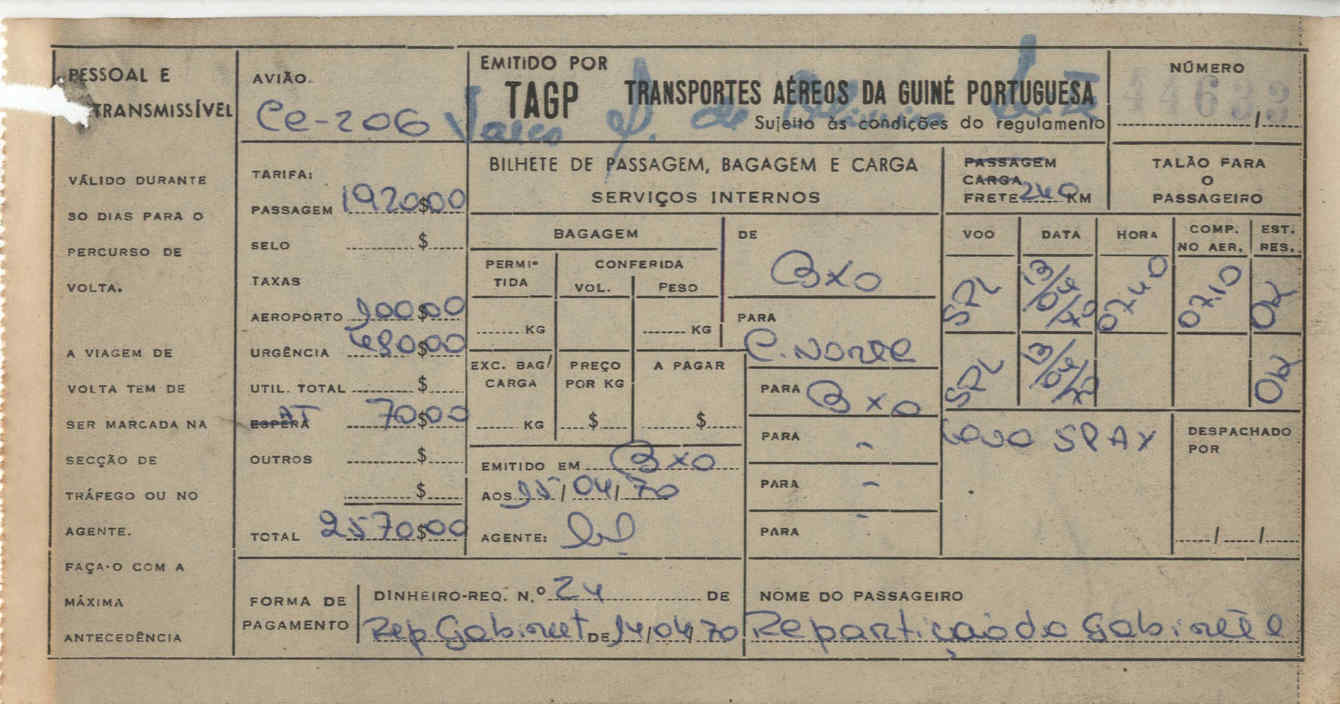 PESSOAL E
TRANSMISSÍVEL
VÁLIDO DURANTE
30 DIAS PARA O
PERCURSO DE
VOLTA.
A VIAGEM DE
VOLTA TEM DE
SER MARCADA NA
SECÇÃO DE
TRÁFEGO OU NO
AGENTE.
FAÇA-O COM A
MÁXIMA
ANTECEDÊNCIA
AVIÃO
Ce-206
TARIFA:
PASSAGEM 1920$00
SELO $
TAXAS
AEROPORTO 100$00
URGÊNCIA 480$00
UTIL. TOTAL $
ESPERA AT 70$00
OUTROS $
$
TOTAL 2570$00
EMITIDO POR
TAGP TRANSPORTES AÉREOS DA GUINÉ PORTUGUESA
Vasco de
Sujeito às condições do regulamento
NÚMERO
44633
/
BILHETE DE PASSAGEM, BAGAGEM E CARGA
SERVIÇOS INTERNOS
PASSAGEM
CARGA
FRETE 240 KM
TALÃO PARA
O
PASSAGEIRO
BAGAGEM
PERMI-
TIDA
CONFERIDA
VOL. PESO
KG KG
EXC. BAG/
CARGA
PREÇO
POR KG
A PAGAR
KG $ $
EMITIDO EM BXO
AOS 15/04/70
AGENTE:
DE
BXO
PARA
C. Norte
PARA BXO
PARA -
PARA -
PARA -
VOO DATA HORA COMP. NO AER. EST. RES.
SPL 13/04/70 0740 0710 OK
SPL 13/04/70 OK
SPAX
DESPACHADO
POR
/ /
FORMA DE
PAGAMENTO
DINHEIRO-REQ. N.º 24 DE
Rep Gabinet DE 14/04/70
NOME DO PASSAGEIRO
Repartição do Gabinete